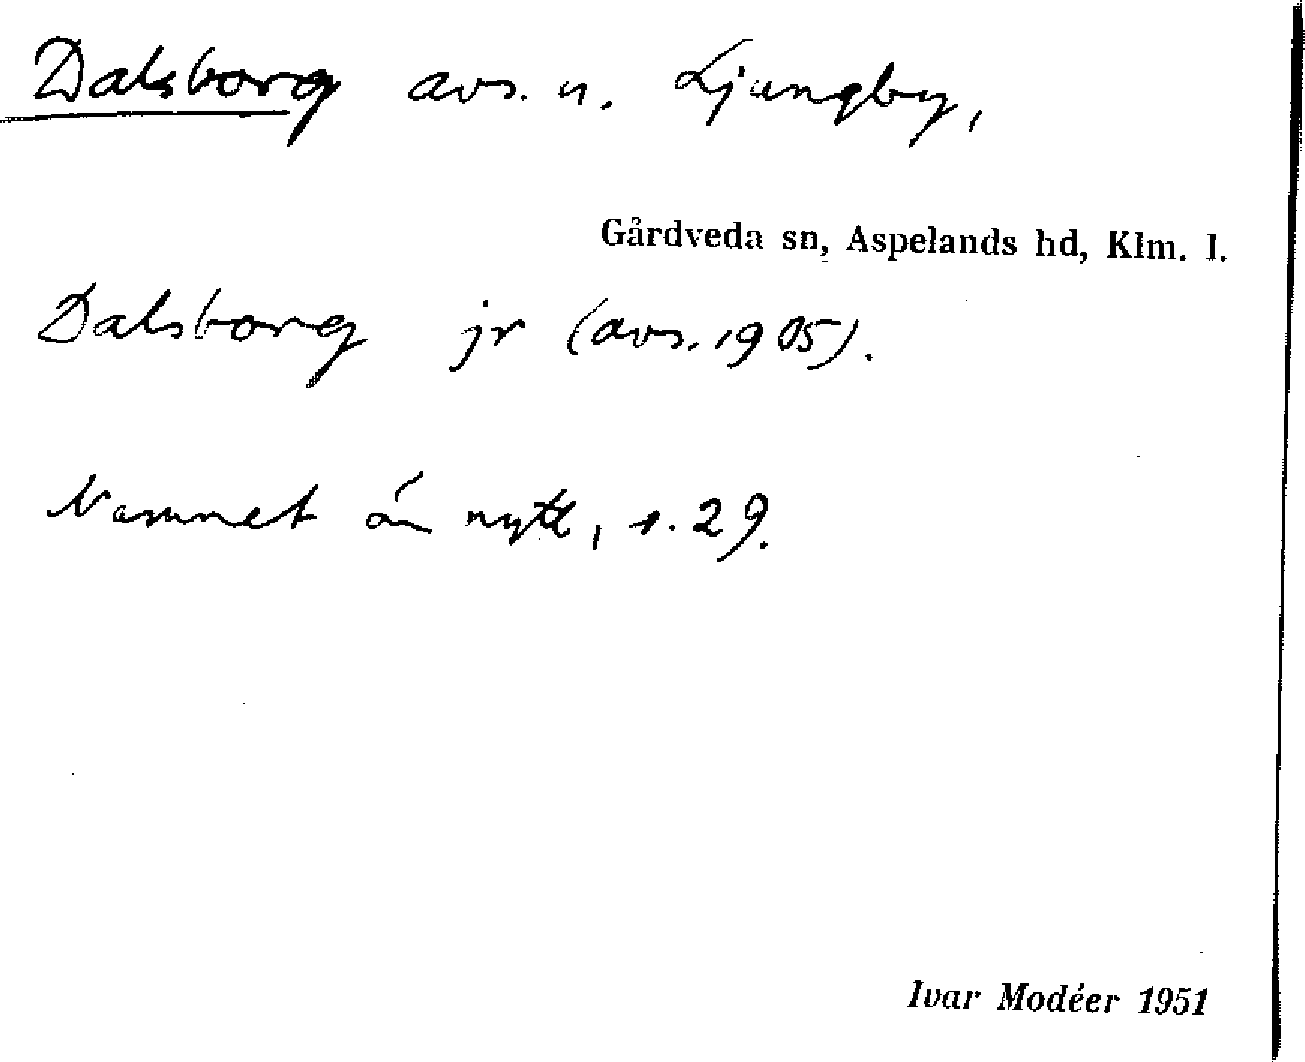 Dalsborg avs. u. Ljungby,
Gårdveda sn, Aspelands hd, Klm. l.
Dalsborg jr (avs. 1905).
Namnet är nytt, s. 29.
Ivar Modéer 1951